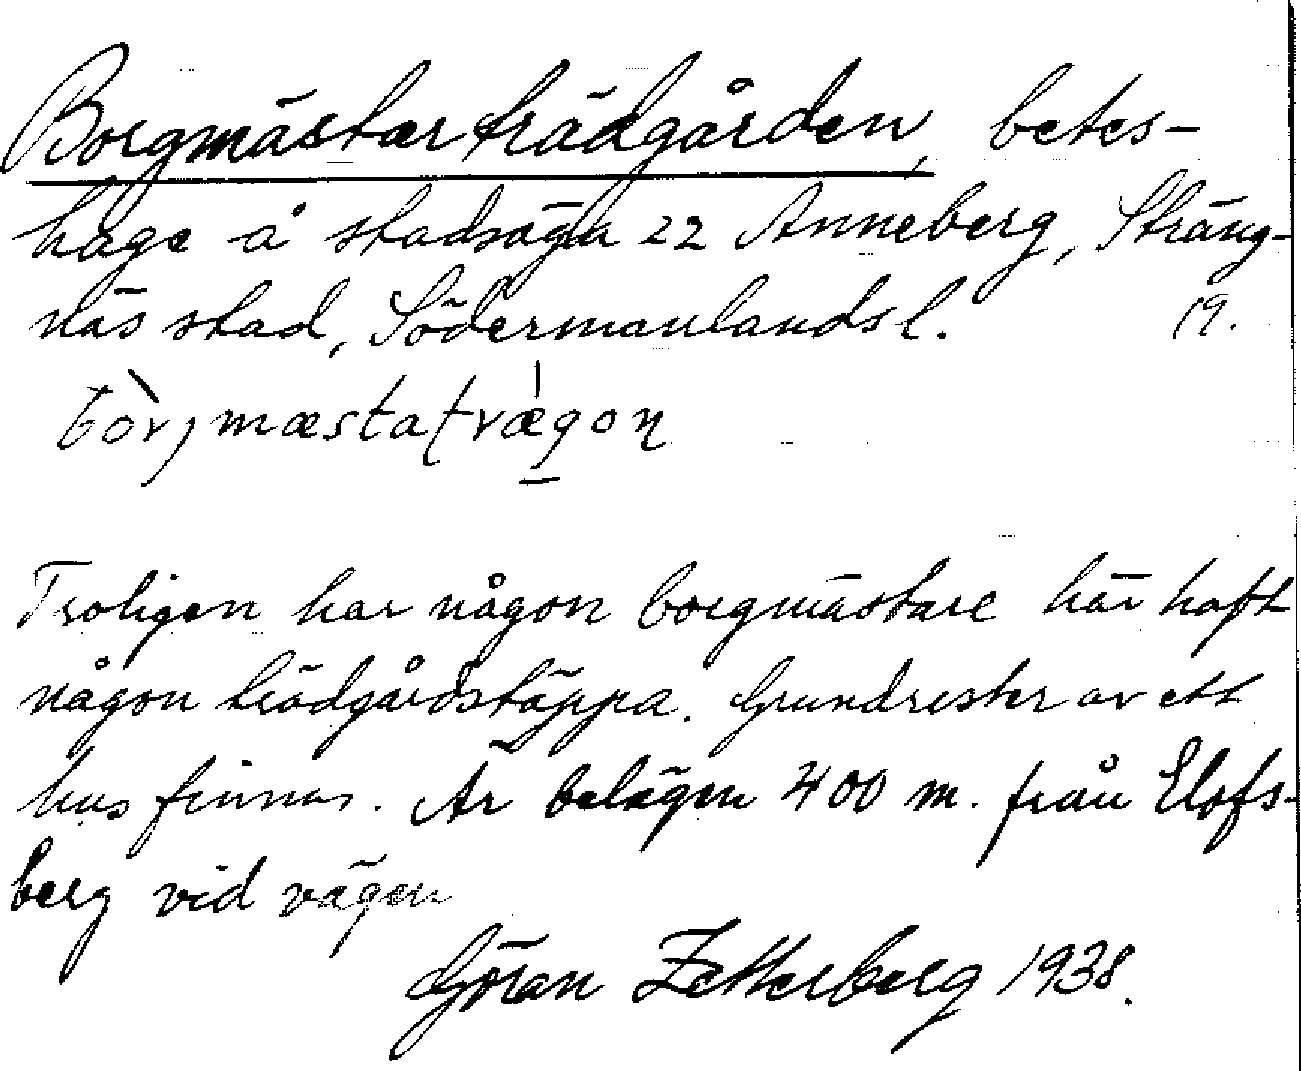 Borgmästarträdgården, betes-
hage å stadsägn 22 Anneberg, Sträng-
näs stad, Södermanlands l. 19.
bòrjmæstaʈrægon
Troligen har någon borgmästare här haft
någon trädgårdstäppa. Grundrester av ett
hus finnas. Är belägen 400 m. från Elofs-
berg vid vägen
Göran Zetterberg 1938.